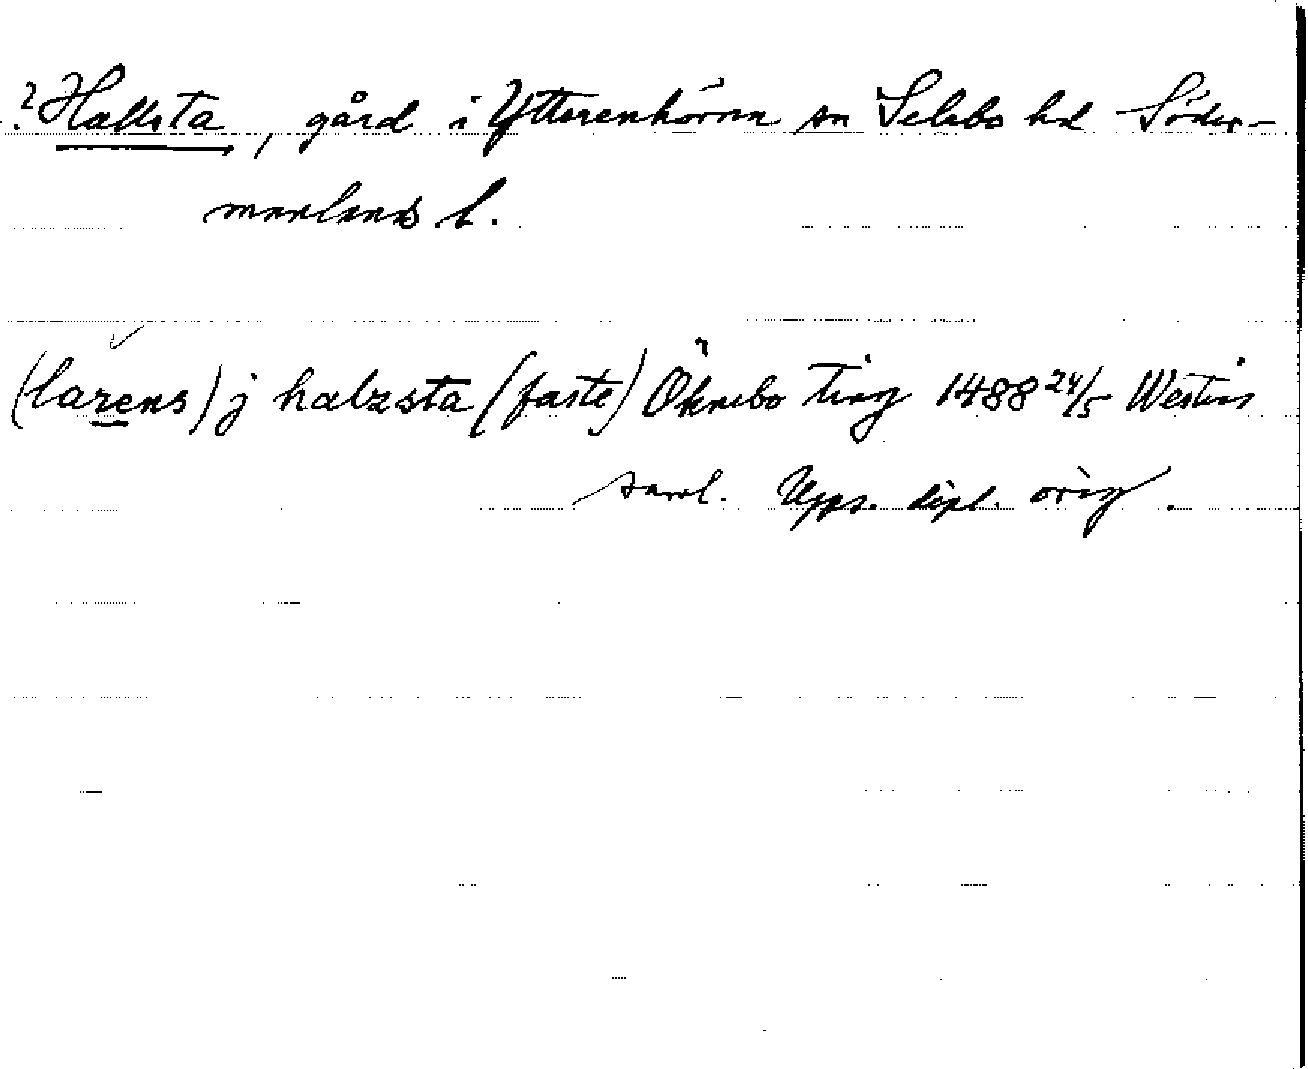 ? Hallsta, gård i Ytterenhörna sn Selebo hd Söder-
manlands l.
(larens) j halzsta (faste) Öknebo ting 1488 24/5 Westins
saml. Upps. dipl. orig.